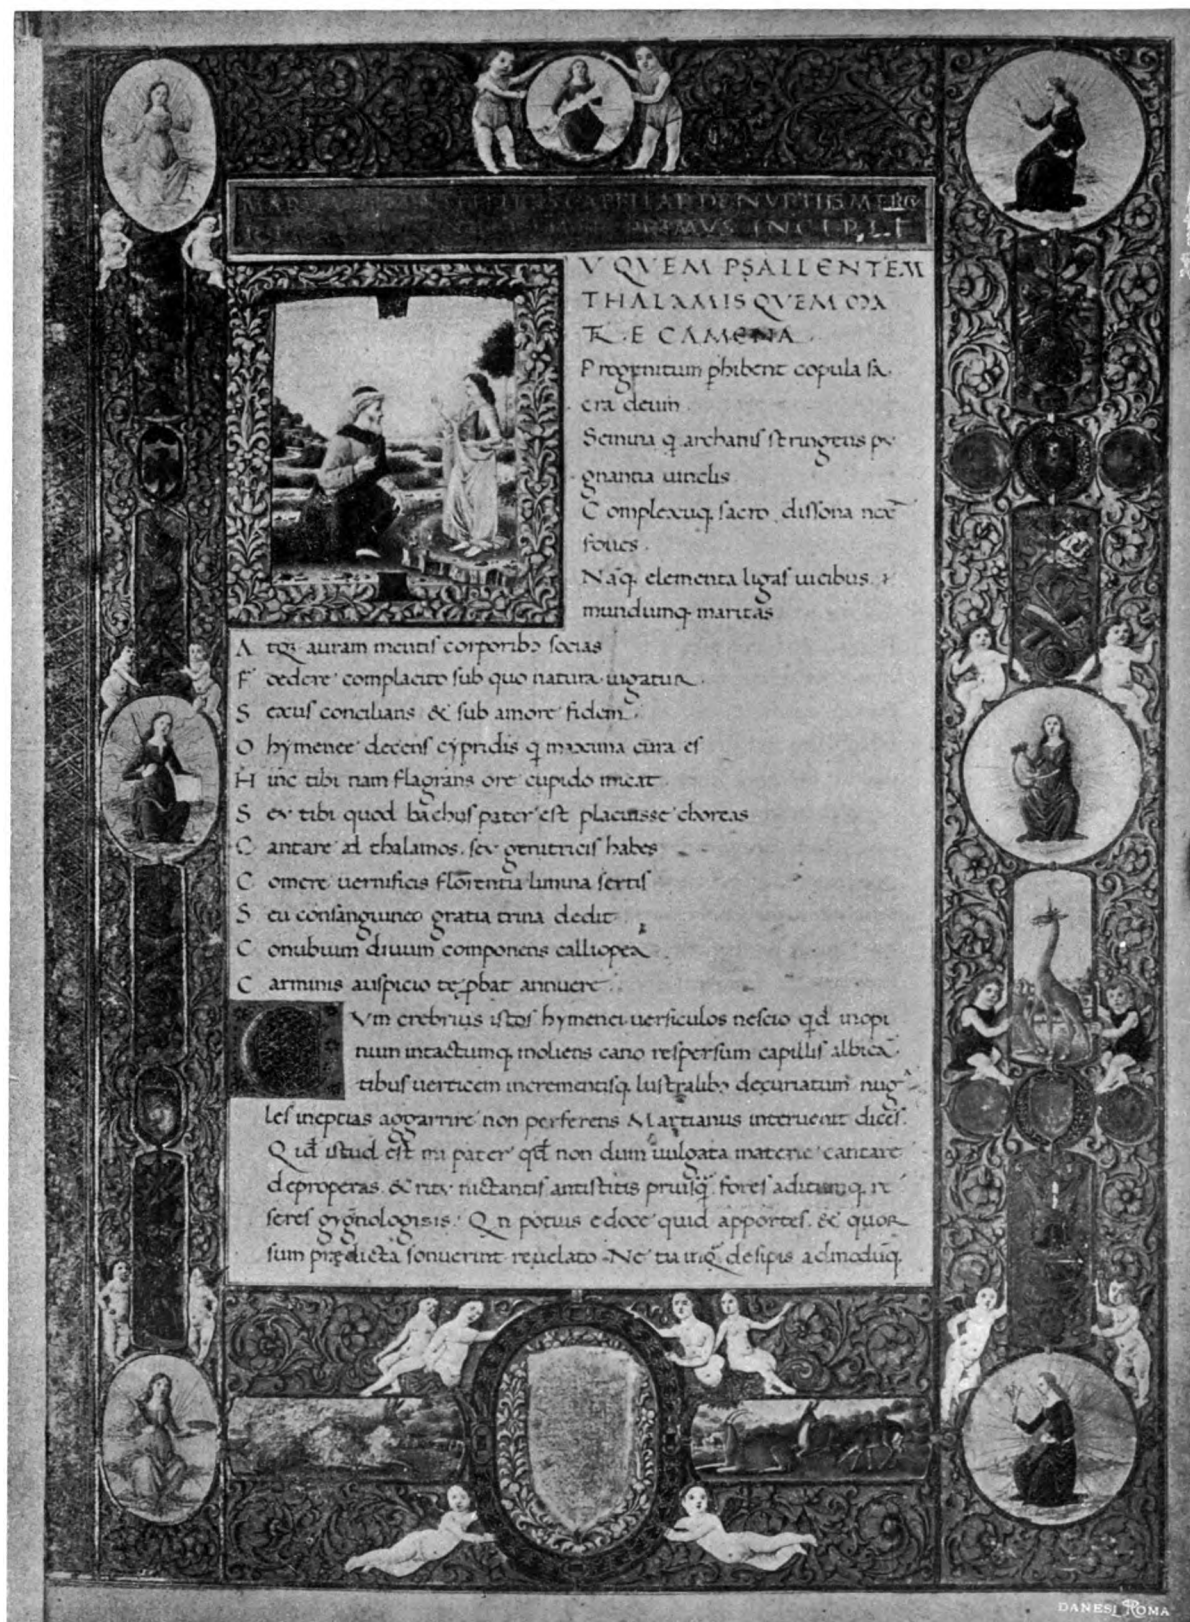 CAPELLAE DE NVPTIIS MERCV
PRIMVS INCIPIT
V QVEM PSALLENTEM
THALAMIS QVEM MA
TR E CAMENA
Progenitum phibent copula sa
cra deum
Semina q archanis stringens pu
gnantia uinclis
Complexuq sacro dissona nex
foues
Naq elementa ligas uicibus
mundumq maritas
Atq auram mentis corporibɔ socias
Foedere complacito sub quo natura iugatur
Sexus concilians & sub amore fidem
O hymenee decens cypridis q maxima cura es
Hinc tibi nam flagrans ore cupido micat
Seu tibi quod bachus pater est placuisse choreas
Cantare ad thalamos seu genitricis habes
Comere uernificis florentia limina sertis
Seu consanguineo gratia trina dedit
Conubium diuum componens calliopea
Carminis auspicio te pbat annuere
CVm crebrius istos hymenei uersiculos nescio qd inopi
num intactumq moliens cano respersum capillis albica
tibus uerticem incrementisq lustralibɔ decuriatum nug
les ineptias aggarrire non perferens Martianus interuenit dices
Qid istud est mi pater qd non dum uulgata materie cantare
deproperas & ritu nictantis antistitis priusq fores aditumq re
seres gygnologisis Qn potius edoce quid apportes & quor
sum prędicta sonuerint reuelato Ne tu inq desipis admoduq
DANESI ROMA